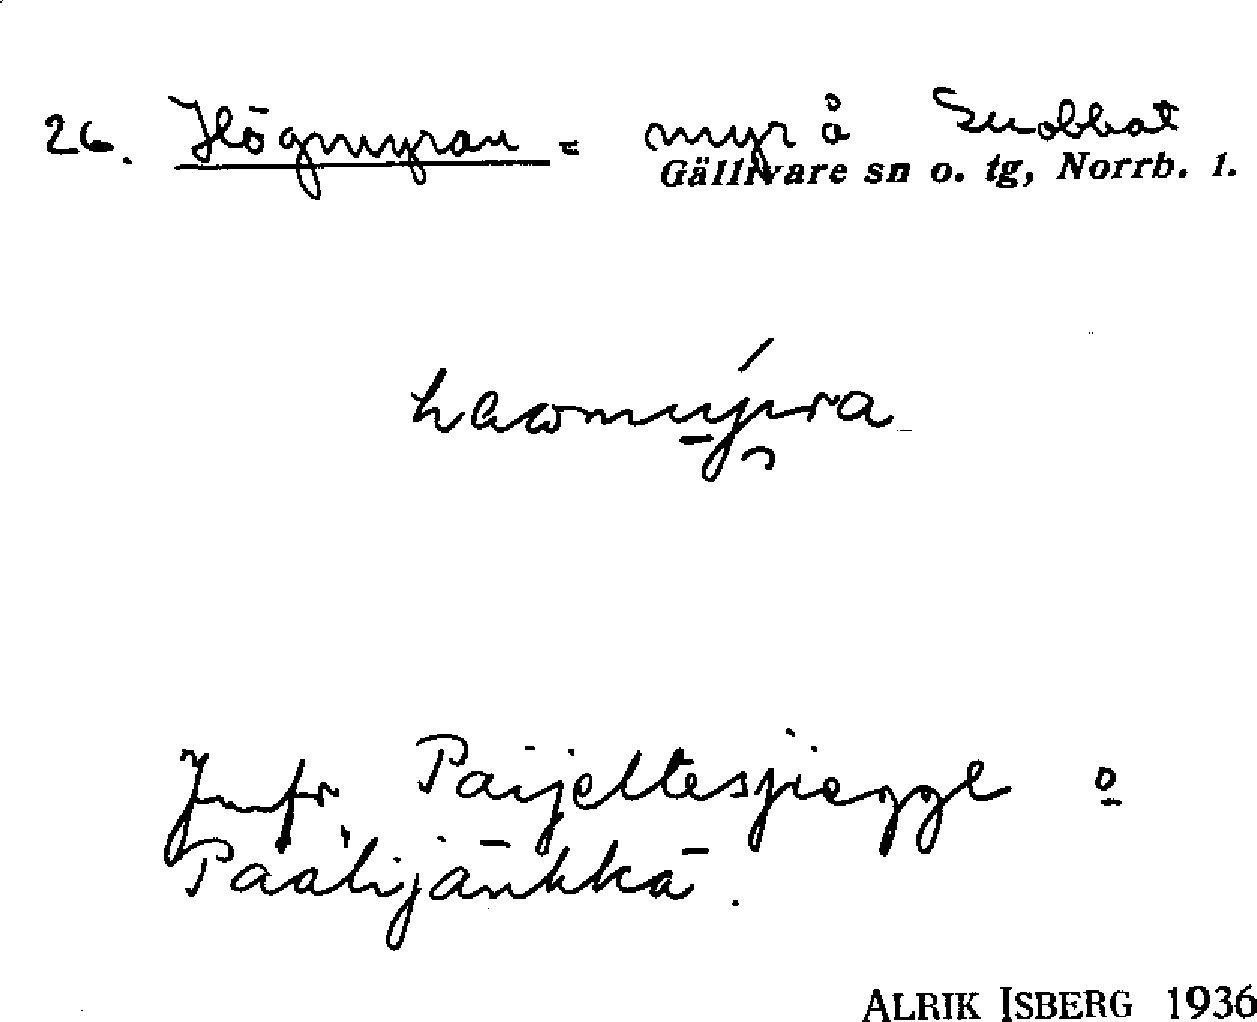 26. Högmyran = myr å Snobbat
Gällivare sn o. tg, Norrb. l.
Jmfr. Paijeltesjiegge o
Päälijänkkä.
ALRIK ISBERG 1936